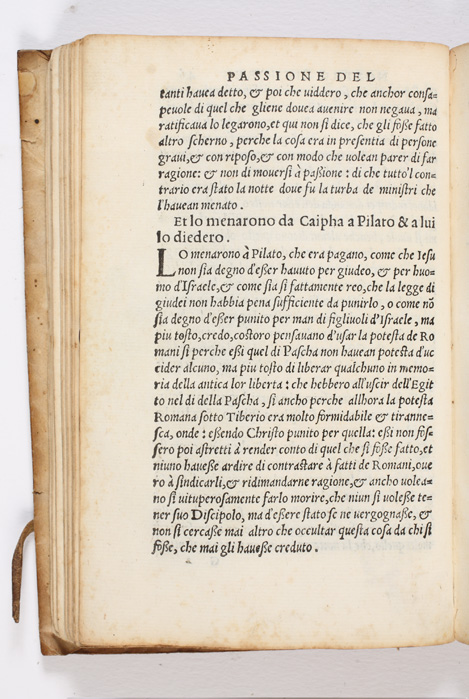 PASSIONE DEL
tanti hauea detto, & poi che uiddero, che anchor consa-
peuole di quel che gliene douea auenire non negaua, ma
ratificaua lo legarono, et qui non si dice, che gli fosse fatto
altro scherno, perche la cosa era in presentia di persone
graui, & con riposo, & con modo che uolean parer di far
ragione: & non di mouersi à passione: di che tutto'l con-
trario era stato la notte doue fu la turba de ministri che
l'hauean menato.
Et lo menarono da Caipha a Pilato & a lui
lo diedero.
LO menarono à Pilato, che era pagano, come che Iesu
non sia degno d'esser hauuto per giudeo, & per huo-
mo d'Israele, & come sia si fattamente reo, che la legge di
giudei non habbia pena sufficiente da punirlo, o come nõ
sia degno d'esser punito per man di figliuoli d'Israele, ma
piu tosto, credo, costoro pensauano d'usar la potesta de Ro
mani si perche essi quel di Pascha non hauean potesta d'uc
cider alcuno, ma piu tosto di liberar qualchuno in memo-
ria della antica lor liberta: che hebbero all'uscir dell'Egit
to nel di della Pascha, si ancho perche allhora la potesta
Romana sotto Tiberio era molto formidabile & tiranne-
sca, onde: essendo Christo punito per quella: essi non fos-
sero poi astretti à render conto di quel che si fosse fatto, et
niuno hauesse ardire di contrastare à fatti de Romani, oue
ro à sindicarli, & ridimandarne ragione, & ancho uolea-
no si uituperosamente farlo morire, che niun si uolesse te-
ner suo Discipolo, ma d'essere stato se ne uergognasse, &
non si cercasse mai altro che occultar questa cosa da chi si
fosse, che mai gli hauesse creduto.